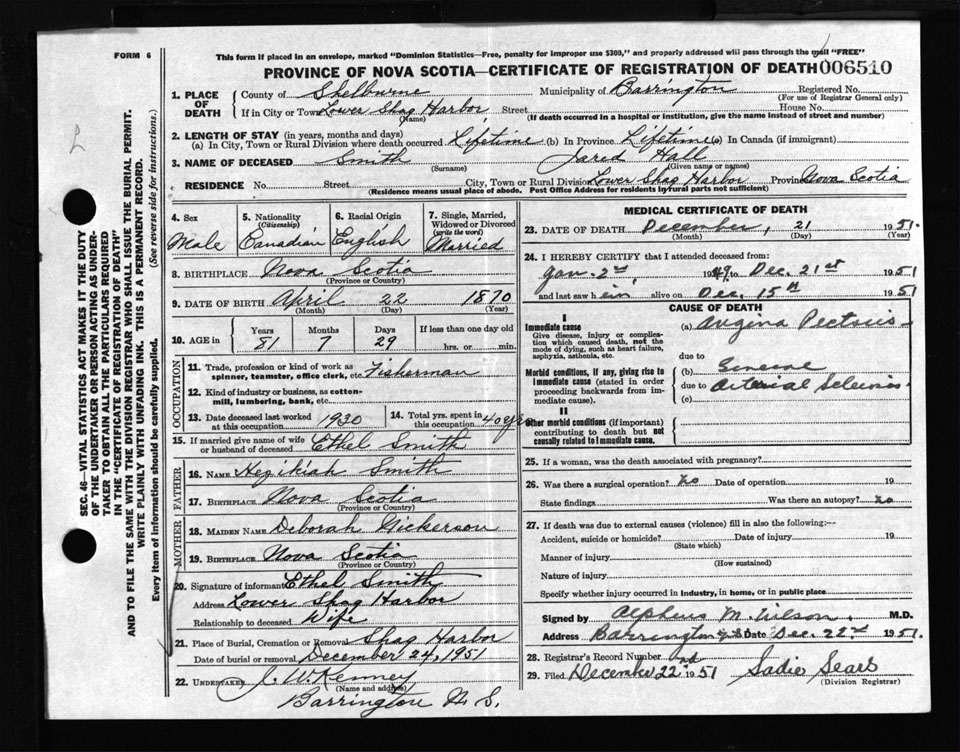 FORM 6
This form if placed in an envelope, marked "Dominion Statistics—Free, penalty for improper use $300," and properly addressed will pass through the mail "FREE"
PROVINCE OF NOVA SCOTIA—CERTIFICATE OF REGISTRATION OF DEATH 006510
1. PLACE OF DEATH
County of Shelburne Municipality of Barrington Registered No.
(For use of Registrar General only)
If in City or Town Lower Shag Harbor Street House No.
(Name) (If death occurred in a hospital or institution, give the name instead of street and number)
2. LENGTH OF STAY (in years, months and days)
(a) In City, Town or Rural Division where death occurred Lifetime (b) In Province Lifetime (c) In Canada (if immigrant)
3. NAME OF DECEASED Smith Jared Hall
(Surname) (Given name or names)
RESIDENCE No. Street City, Town or Rural Division Lower Shag Harbor Province Nova Scotia
(Residence means usual place of abode. Post Office Address for Residents by rural parts not sufficient)
4. Sex Male
5. Nationality (Citizenship) Canadian
6. Racial Origin English
7. Single, Married, Widowed or Divorced (write the word) Married
8. BIRTHPLACE Nova Scotia
(Province or Country)
9. DATE OF BIRTH April 22 1870
(Month) (Day) (Year)
10. AGE in Years Months Days If less than one day old
81 7 29 hrs. or min.
OCCUPATION
11. Trade, profession or kind of work as spinner, teamster, office clerk, etc. Fisherman
12. Kind of industry or business, as cotton-mill, lumbering, bank, etc.
13. Date deceased last worked at this occupation 1930
14. Total yrs. spent in this occupation 40 yrs
15. If married give name of wife or husband of deceased Ethel Smith
FATHER
16. NAME Hezikiah Smith
17. BIRTHPLACE Nova Scotia
(Province or Country)
MOTHER
18. MAIDEN NAME Deborah Nickerson
19. BIRTHPLACE Nova Scotia
(Province or Country)
20. Signature of informant Ethel Smith
Address Lower Shag Harbor
Relationship to deceased Wife
21. Place of Burial, Cremation or Removal Shag Harbor
Date of burial or removal December 24, 1951
22. UNDERTAKER J. W. Kenney
(Name and address)
Barrington N. S.
MEDICAL CERTIFICATE OF DEATH
23. DATE OF DEATH December, 21 1951
(Month) (Day) (Year)
24. I HEREBY CERTIFY that I attended deceased from:
Jan. 2nd, 1949, to Dec. 21st 1951
and last saw him alive on Dec. 15th 1951
CAUSE OF DEATH
I
Immediate cause
Give disease, injury or complication which caused death, not the mode of dying, such as heart failure, asphyxia, asthenia, etc.
(a) Angina Pectoris
due to
Morbid conditions, if any, giving rise to immediate cause (stated in order proceeding backwards from immediate cause).
(b)
due to Arterial Sclerosis
(c)
II
Other morbid conditions (if important) contributing to death but not causally related to immediate cause.
25. If a woman, was the death associated with pregnancy?
26. Was there a surgical operation? no Date of operation 19
State findings Was there an autopsy? no
27. If death was due to external causes (violence) fill in also the following:—
Accident, suicide or homicide? Date of injury 19
(State which)
Manner of injury
(How sustained)
Nature of injury
Specify whether injury occurred in industry, in home, or in public place
Signed by Alpheus M. Wilson. M.D.
Address Barrington N.S. Date Dec. 22nd 1951.
28. Registrar's Record Number
29. Filed December 22 1951 Sadie Sears
(Division Registrar)
SEC. 46—VITAL STATISTICS ACT MAKES IT THE DUTY
OF THE UNDERTAKER OR PERSON ACTING AS UNDER-
TAKER TO OBTAIN ALL THE PARTICULARS REQUIRED
IN THE "CERTIFICATE OF REGISTRATION OF DEATH"
AND TO FILE THE SAME WITH THE DIVISION REGISTRAR WHO SHALL ISSUE THE BURIAL PERMIT.
WRITE PLAINLY WITH UNFADING INK. THIS IS A PERMANENT RECORD.
Every item of information should be carefully supplied. (See reverse side for instructions.)